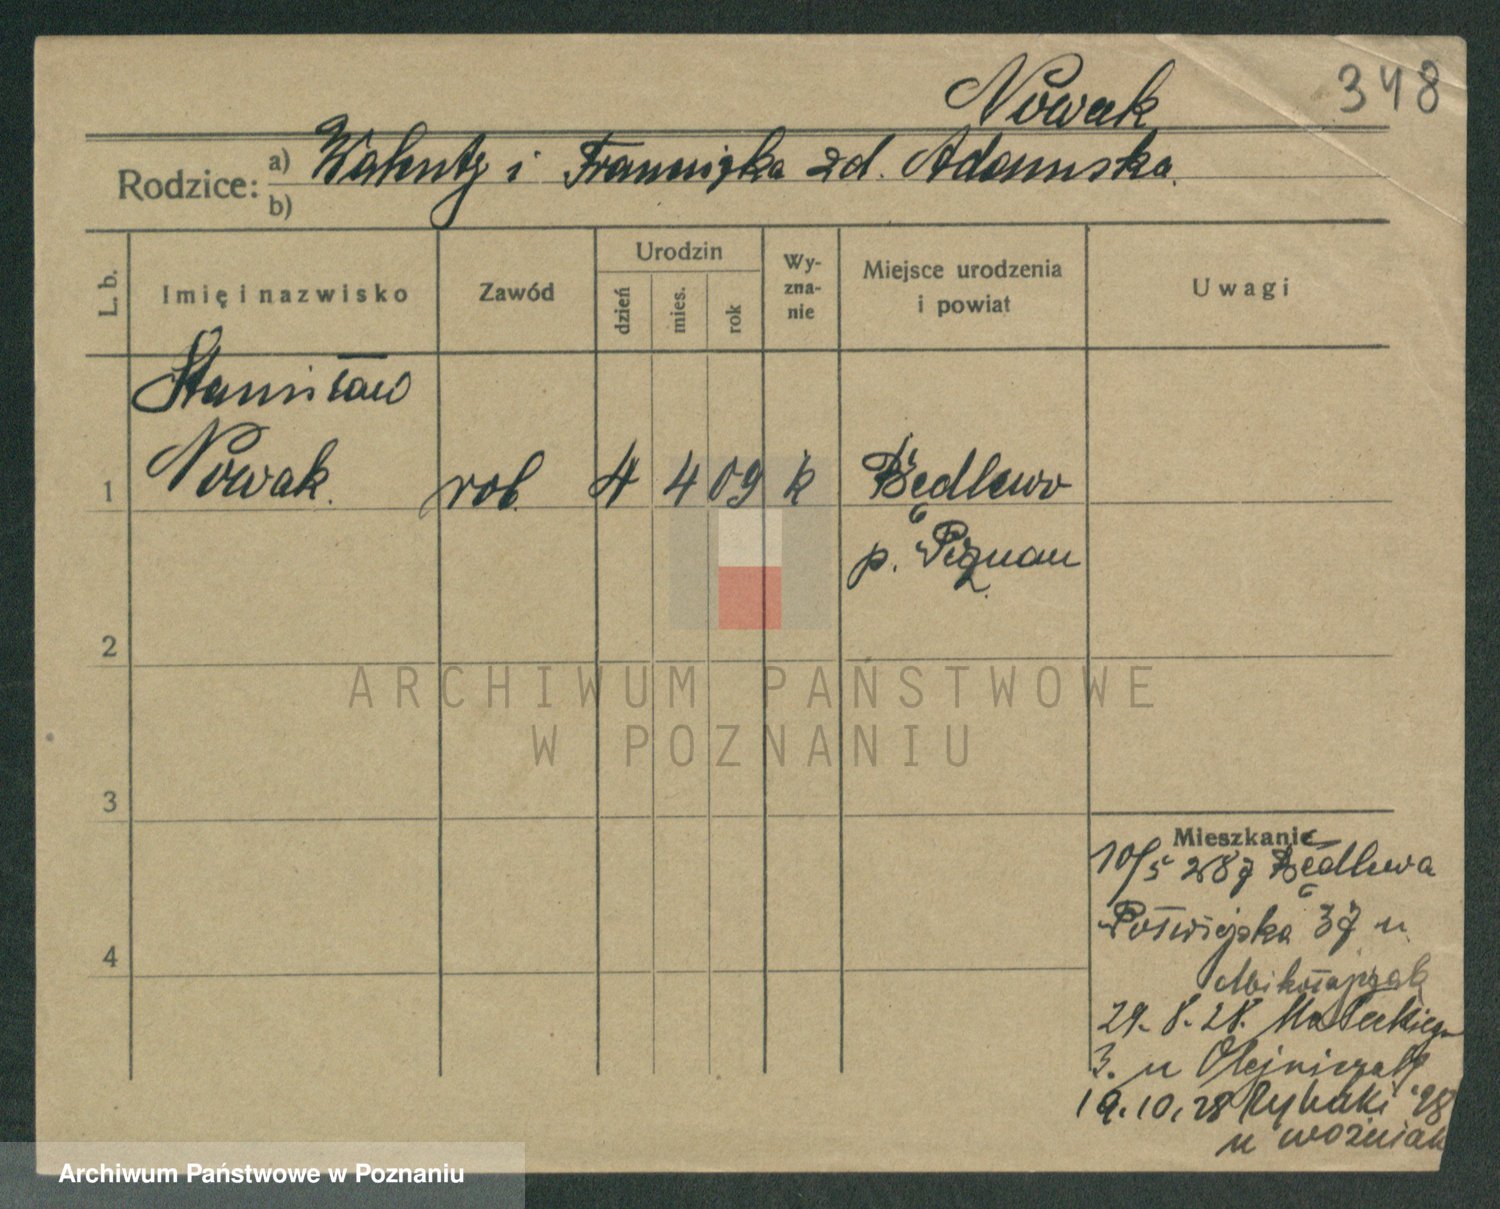 Nowak
348
Rodzice: a) Walenty i Franciszka zd. Adamska.
b)
L. b.
Imię i nazwisko
Zawód
Urodzin
dzień
mies.
rok
Wy-
zna-
nie
Miejsce urodzenia
i powiat
Uwagi
Stanisław
1 Nowak. rob. 4 4 09 k Będlewo
p. Poznań
2
ARCHIWUM PAŃSTWOWE
W POZNANIU
3
Mieszkanie
10/5 28 z Będlewa
Półwiejska 37 u
Mikołajczak
4
29. 8. 28. Małeckiego
3. u Olejniczak
19.10.28 Rybaki 28
u Woźniak
Archiwum Państwowe w Poznaniu